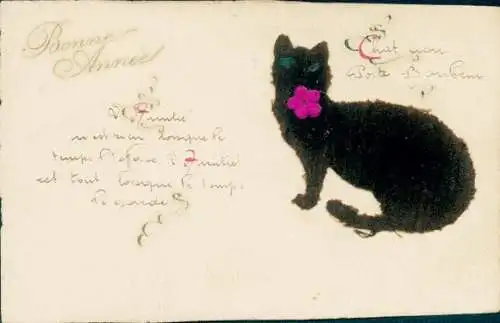 Bonne
Année
Chat noir
Porte Bonheur
L'Amitié
n'est rien lorsque le
temps l'efface. L'Amitié
est tout lorsque le temps
la garde